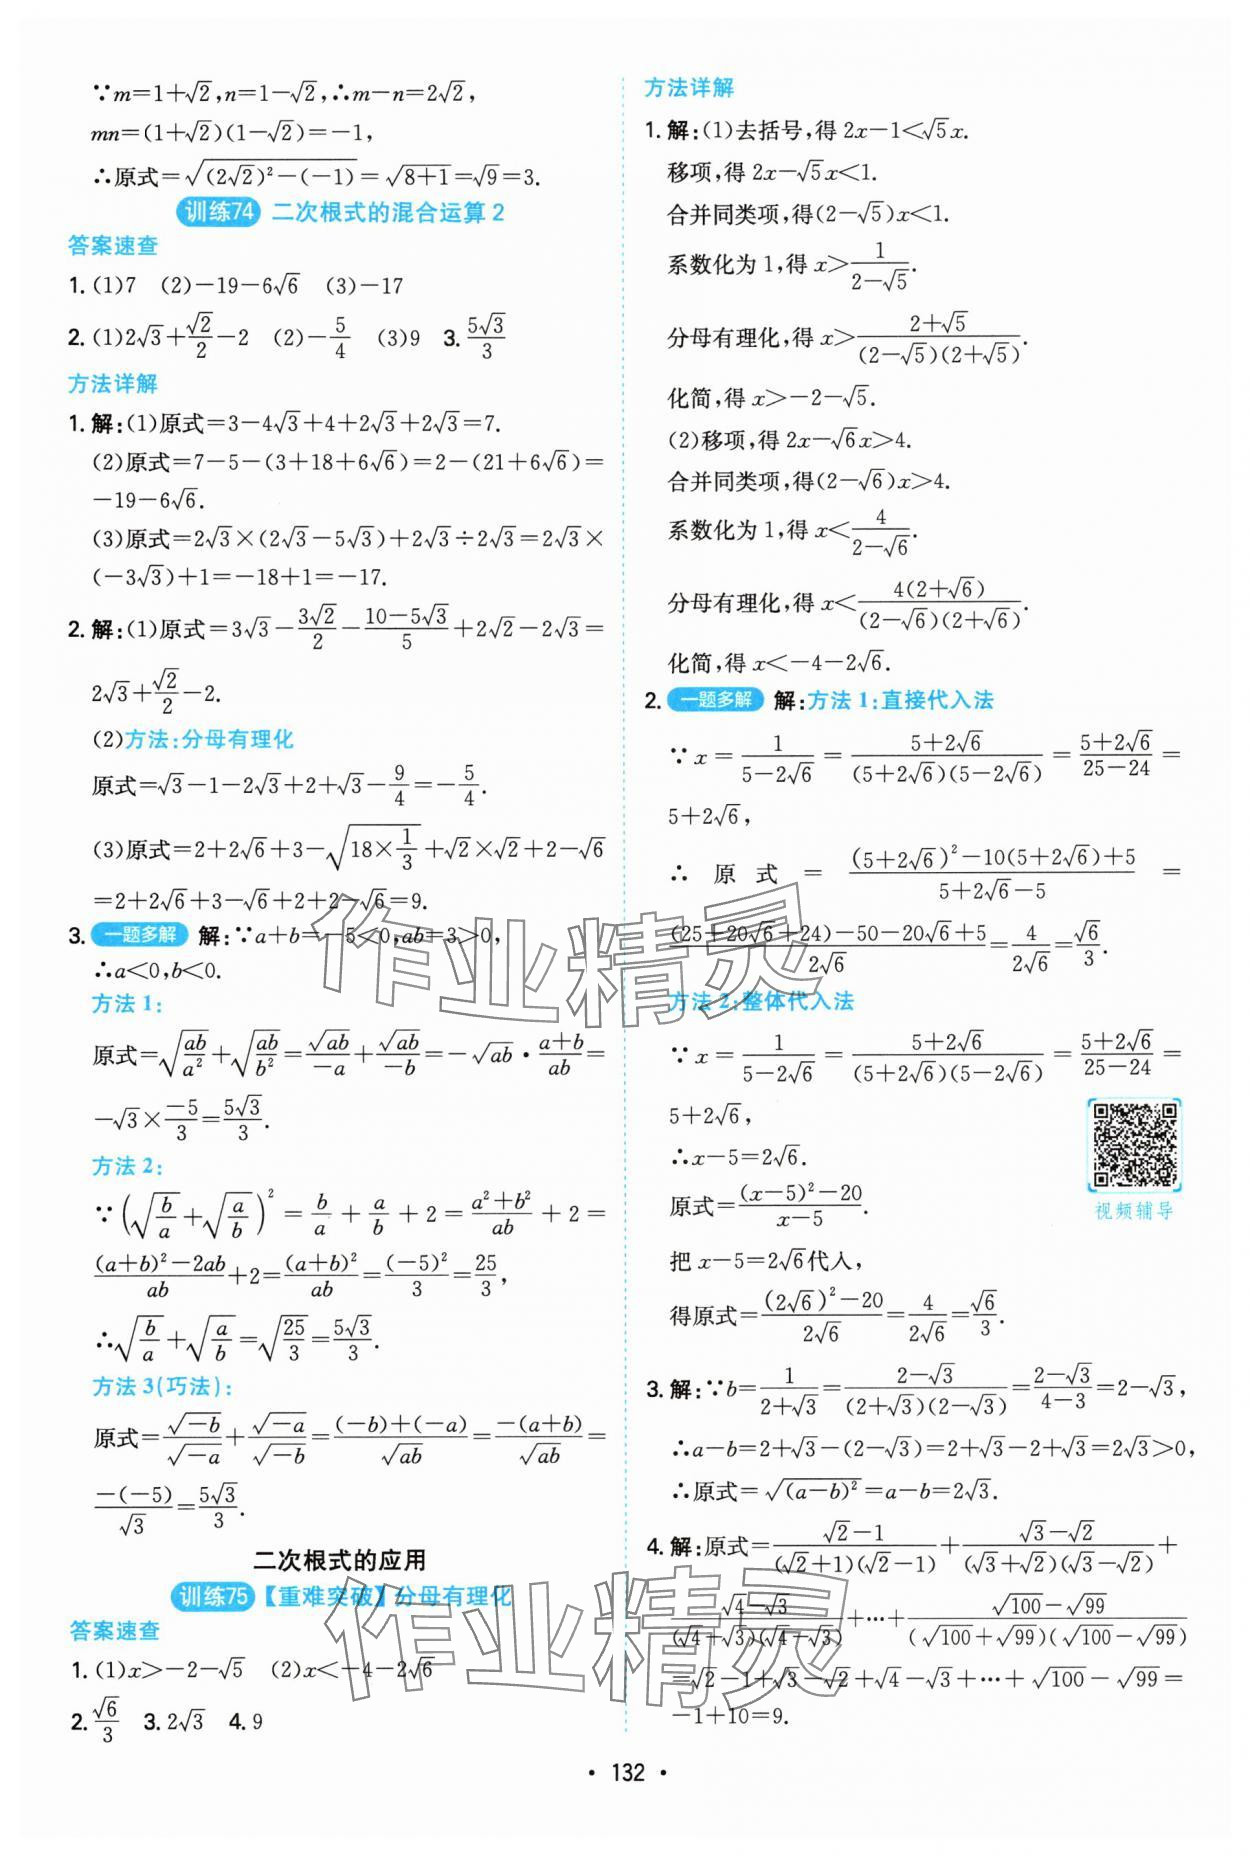 ∵m=1+√2,n=1-√2,∴m-n=2√2,
mn=(1+√2)(1-√2)=-1,
∴原式=√((2√2)²-(-1))=√(8+1)=√9=3.
训练74 二次根式的混合运算2
答案速查
1.(1)7 (2)-19-6√6 (3)-17
2.(1)2√3+√2/2-2 (2)-5/4 (3)9 3.5√3/3
方法详解
1.解:(1)原式=3-4√3+4+2√3+2√3=7.
(2)原式=7-5-(3+18+6√6)=2-(21+6√6)=
-19-6√6.
(3)原式=2√3×(2√3-5√3)+2√3÷2√3=2√3×
(-3√3)+1=-18+1=-17.
2.解:(1)原式=3√3-3√2/2-(10-5√3)/5+2√2-2√3=
2√3+√2/2-2.
(2)方法:分母有理化
原式=√3-1-2√3+2+√3-9/4=-5/4.
(3)原式=2+2√6+3-√(18×1/3)+√2×√2+2-√6
=2+2√6+3-√6+2+2-√6=9.
3.一题多解 解:∵a+b=-5<0,ab=3>0,
∴a<0,b<0.
方法1:
原式=√(ab/a²)+√(ab/b²)=√ab/-a+√ab/-b=-√ab·(a+b)/ab=
-√3×-5/3=5√3/3.
方法2:
∵(√(b/a)+√(a/b))²=b/a+a/b+2=(a²+b²)/ab+2=
((a+b)²-2ab)/ab+2=(a+b)²/ab=(-5)²/3=25/3,
∴√(b/a)+√(a/b)=√(25/3)=5√3/3.
方法3(巧法):
原式=√-b/√-a+√-a/√-b=((-b)+(-a))/√ab=-(a+b)/√ab=
-(-5)/√3=5√3/3.
二次根式的应用
训练75【重难突破】分母有理化
答案速查
1.(1)x>-2-√5 (2)x<-4-2√6
2.√6/3 3.2√3 4.9
方法详解
1.解:(1)去括号,得2x-1<√5x.
移项,得2x-√5x<1.
合并同类项,得(2-√5)x<1.
系数化为1,得x>1/(2-√5).
分母有理化,得x>(2+√5)/((2-√5)(2+√5)).
化简,得x>-2-√5.
(2)移项,得2x-√6x>4.
合并同类项,得(2-√6)x>4.
系数化为1,得x<4/(2-√6).
分母有理化,得x<4(2+√6)/((2-√6)(2+√6)).
化简,得x<-4-2√6.
2.一题多解 解:方法1:直接代入法
∵x=1/(5-2√6)=(5+2√6)/((5+2√6)(5-2√6))=(5+2√6)/(25-24)=
5+2√6,
∴原式=((5+2√6)²-10(5+2√6)+5)/(5+2√6-5)=
((25+20√6+24)-50-20√6+5)/2√6=4/2√6=√6/3.
方法2:整体代入法
∵x=1/(5-2√6)=(5+2√6)/((5+2√6)(5-2√6))=(5+2√6)/(25-24)=
5+2√6,
∴x-5=2√6.
原式=((x-5)²-20)/(x-5).
视频辅导
把x-5=2√6代入,
得原式=((2√6)²-20)/2√6=4/2√6=√6/3.
3.解:∵b=1/(2+√3)=(2-√3)/((2+√3)(2-√3))=(2-√3)/(4-3)=2-√3,
∴a-b=2+√3-(2-√3)=2+√3-2+√3=2√3>0,
∴原式=√((a-b)²)=a-b=2√3.
4.解:原式=(√2-1)/((√2+1)(√2-1))+(√3-√2)/((√3+√2)(√3-√2))+
(√4-√3)/((√4+√3)(√4-√3))+…+(√100-√99)/((√100+√99)(√100-√99))
=√2-1+√3-√2+√4-√3+…+√100-√99=
-1+10=9.
·132·
作业精灵
作业精灵